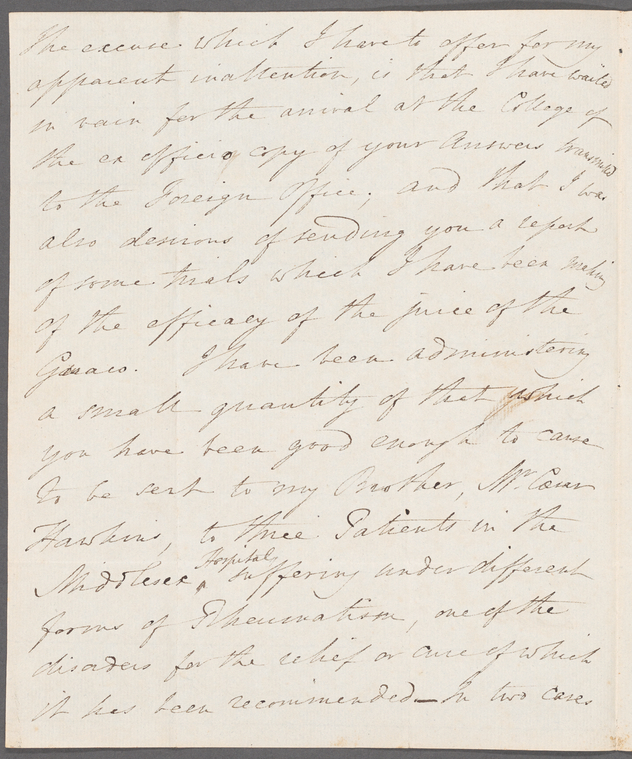 The excuse which I have to offer for my
apparent inattention, is that I have waited
in vain for the arrival at the College of
the ex officio copy of your Answers transmitted
to the Foreign Office; and that I was
also desirous of sending you a report
of some trials which I have been making
of the efficacy of the juice of the
Guaco. I have been administering
a small quantity of that which
you have been good enough to cause
to be sent to my Brother, Mr. Cæsar
Hawkins, to three Patients in the
Hospital
Middlesex ^ suffering under different
forms of Rheumatism, one of the
disorders for the relief or cure of which
it has been recommended_ In two cases